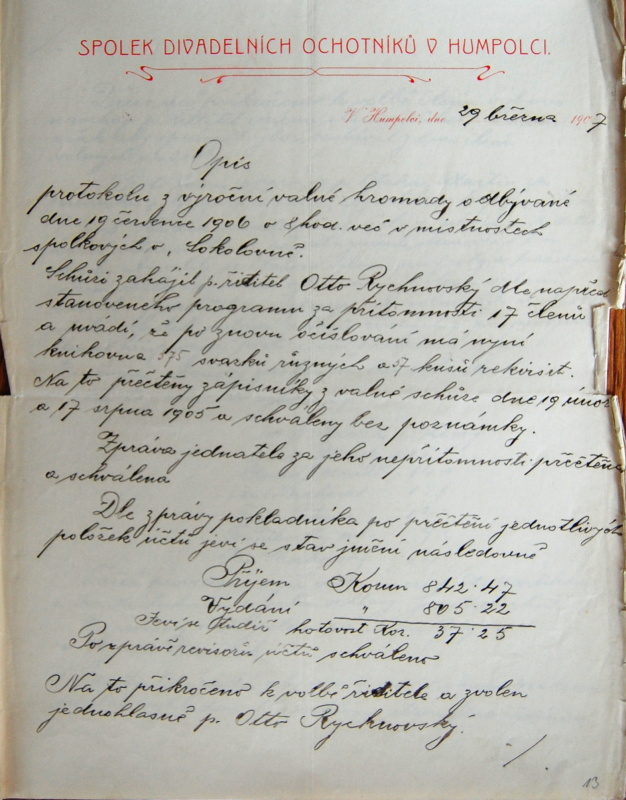 SPOLEK DIVADELNÍCH OCHOTNÍKŮ V HUMPOLCI.
V Humpolci, dne 29 března 1907
Opis
protokolu z výroční valné hromady odbývané
dne 19 července 1906 o 8 hod. več v místnostech
spolkových v „Sokolovně.
Schůzi zahájil p. řiditel Otto Rychnovský dle napřed
stanoveného programu za přítomnosti 17 členů
a uvádí, že po znovu očíslování má nyní
knihovna 575 svazků různých a 57 kusů rekvisit.
Na to přečteny zápisníky z valné schůze dne 19 únor
a 17 srpna 1905 a schváleny bez poznámky.
Zpráva jednatele za jeho nepřítomnosti přečtěna
a schválena
Dle zprávy pokladníka po přečtění jednotlivých
položek účtů jeví se stav jmění následovně
Příjem Korun 842·47
Vydání " 805·22
Jeví se tudíž hotovost Kor. 37·25
Po zprávě revisorů účtů schváleno
Na to přikročeno k volbě řiditele a zvolen
jednohlasně p. Otto Rychnovský.
./.
13